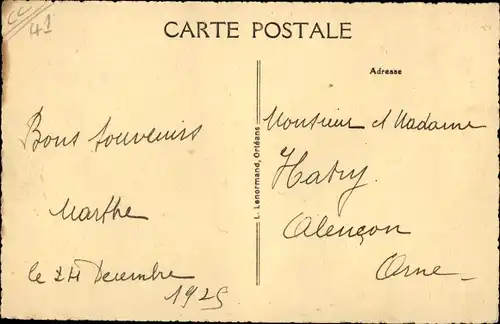 CC
41
CARTE POSTALE
Adresse
Bons souvenirs
Marthe
le 24 Decembre
1925
L. Lenormand, Orléans
Monsieur et Madame
Hatry.
Alençon
Orne